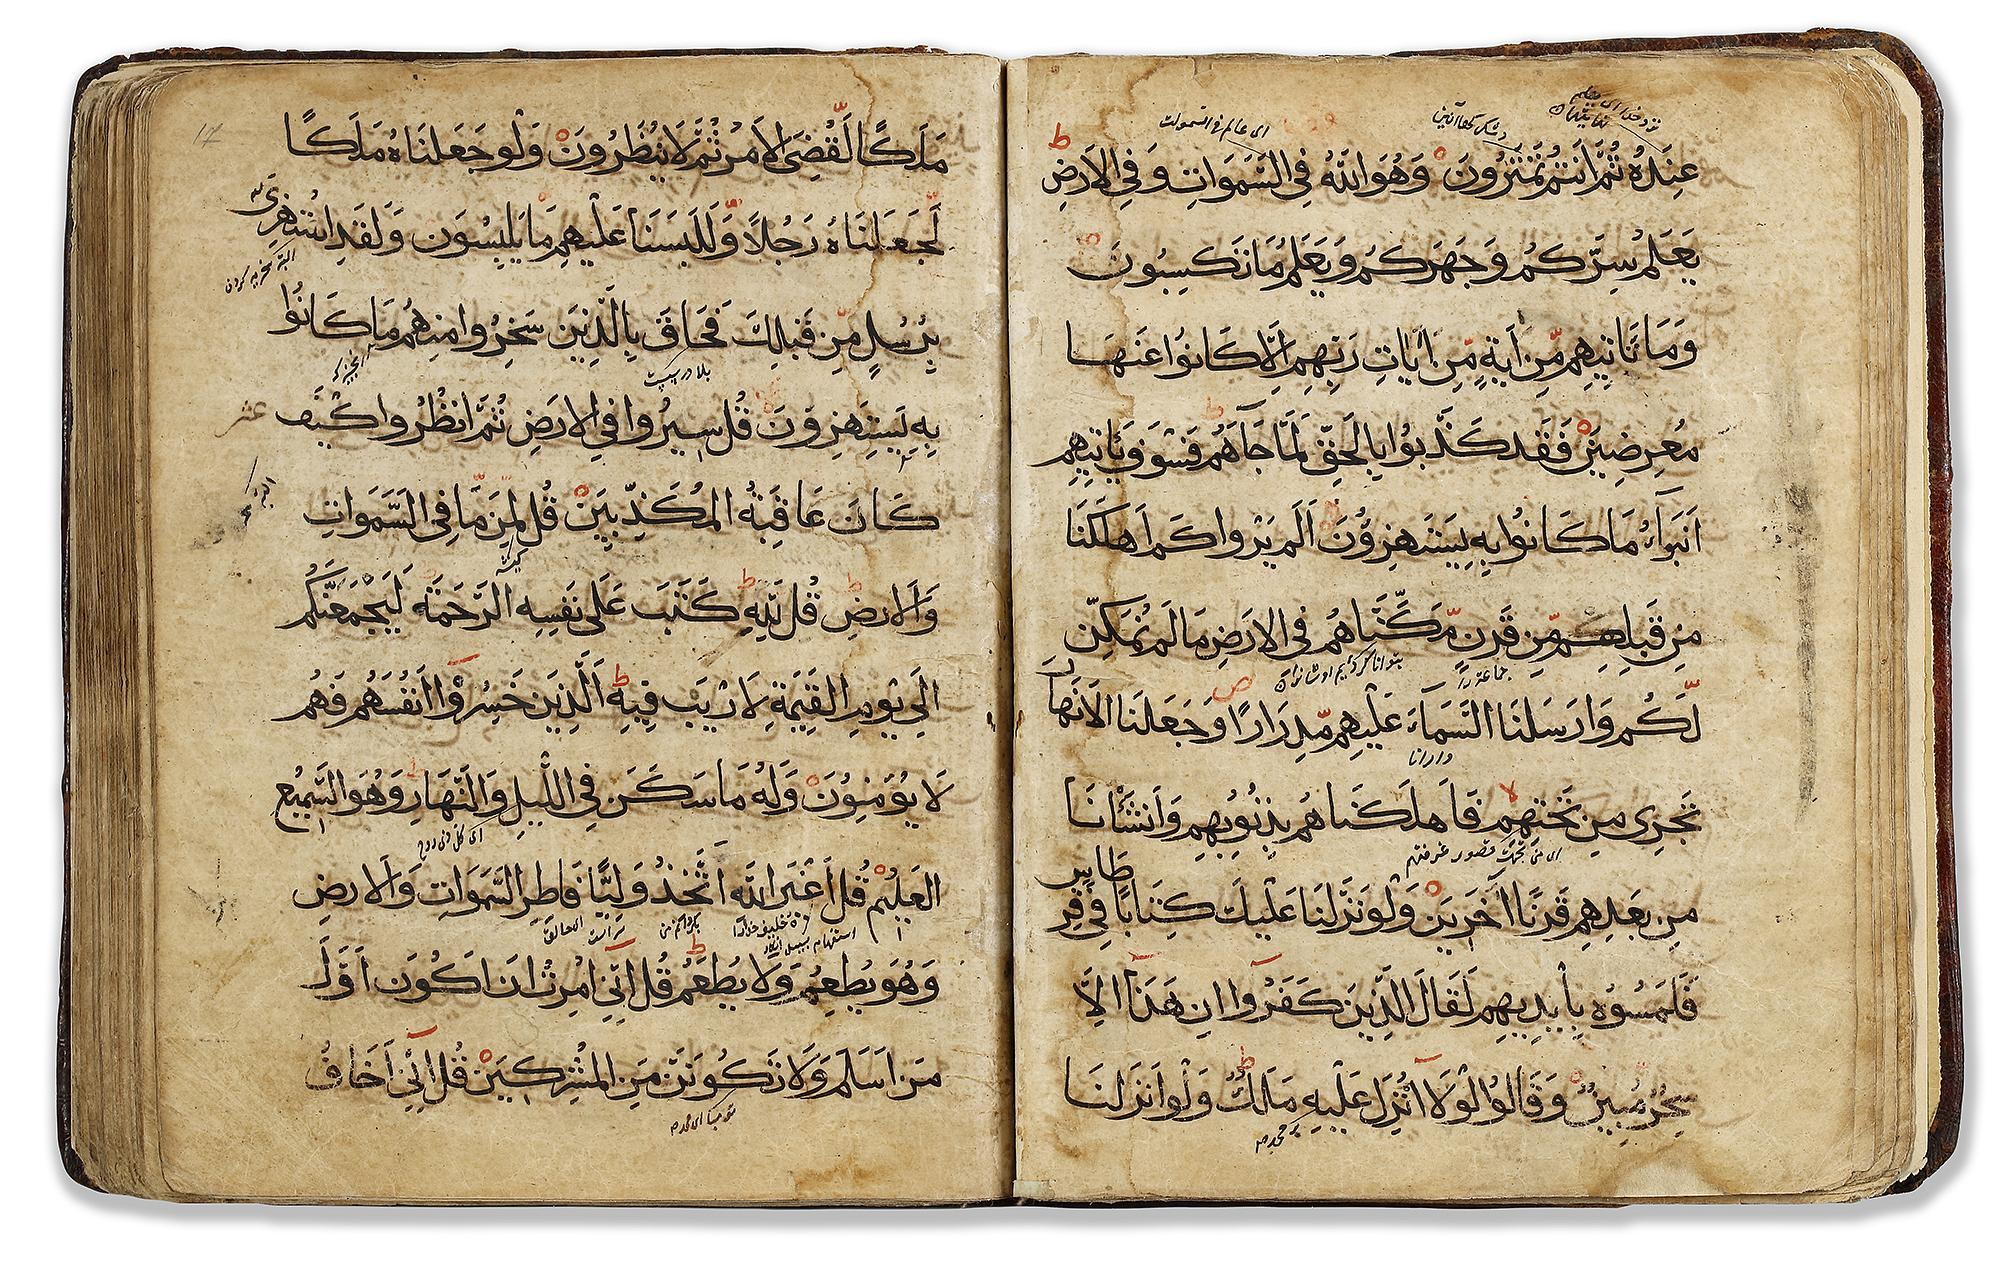 عِندَهُ ثُمَّ اَنتُم تَمتَرُونَ وَهُوَ اللّٰهُ فِي السَّمَوَاتِ وَفِي الاَرضِ
يَعلَمُ سِرَّكُم وَجَهرَكُم وَيَعلَمُ مَا تَكسِبُونَ
وَمَا تَاتِيهِم مِّن اٰيَةٍ مِّن اٰيَاتِ رَبِّهِم اِلَّا كَانُوا عَنهَا
مُعرِضِينَ فَقَد كَذَّبُوا بِالحَقِّ لَمَّا جَآءَهُم فَسَوفَ يَاتِيهِم
اَنبَآءُ مَا كَانُوا بِهِ يَستَهزِءُونَ اَلَم يَرَوا كَم اَهلَكنَا
مِن قَبلِهِم مِّن قَرنٍ مَّكَّنَّاهُم فِي الاَرضِ مَا لَم نُمَكِّن
لَّكُم وَاَرسَلنَا السَّمَآءَ عَلَيهِم مِّدرَارًا وَجَعَلنَا الاَنهَارَ
تَجرِي مِن تَحتِهِم فَاَهلَكنَاهُم بِذُنُوبِهِم وَاَنشَأنَا
مِن بَعدِهِم قَرنًا اٰخَرِينَ وَلَو نَزَّلنَا عَلَيكَ كِتَابًا فِي قِرطَاسٍ
فَلَمَسُوهُ بِاَيدِيهِم لَقَالَ الَّذِينَ كَفَرُوا اِن هَذَا اِلَّا
سِحرٌ مُّبِينٌ وَقَالُوا لَولَا اُنزِلَ عَلَيهِ مَلَكٌ وَلَو اَنزَلنَا
مَلَكًا لَّقُضِيَ الاَمرُ ثُمَّ لَا يُنظَرُونَ وَلَو جَعَلنَاهُ مَلَكًا
لَّجَعَلنَاهُ رَجُلًا وَّلَلَبَسنَا عَلَيهِم مَّا يَلبِسُونَ وَلَقَدِ استُهزِئَ
بِرُسُلٍ مِّن قَبلِكَ فَحَاقَ بِالَّذِينَ سَخِرُوا مِنهُم مَّا كَانُوا
بِهِ يَستَهزِءُونَ قُل سِيرُوا فِي الاَرضِ ثُمَّ انظُرُوا كَيفَ
كَانَ عَاقِبَةُ المُكَذِّبِينَ قُل لِّمَن مَّا فِي السَّمَوَاتِ
وَالاَرضِ قُل لِلّٰهِ كَتَبَ عَلَى نَفسِهِ الرَّحمَةَ لَيَجمَعَنَّكُم
اِلَى يَومِ القِيٰمَةِ لَا رَيبَ فِيهِ اَلَّذِينَ خَسِرُوا اَنفُسَهُم فَهُم
لَا يُؤمِنُونَ وَلَهُ مَا سَكَنَ فِي اللَّيلِ وَالنَّهَارِ وَهُوَ السَّمِيعُ
العَلِيمُ قُل اَغَيرَ اللّٰهِ اَتَّخِذُ وَلِيًّا فَاطِرِ السَّمَوَاتِ وَالاَرضِ
وَهُوَ يُطعِمُ وَلَا يُطعَمُ قُل اِنِّي اُمِرتُ اَن اَكُونَ اَوَّلَ
مَن اَسلَمَ وَلَا تَكُونَنَّ مِنَ المُشرِكِينَ قُل اِنِّي اَخَافُ